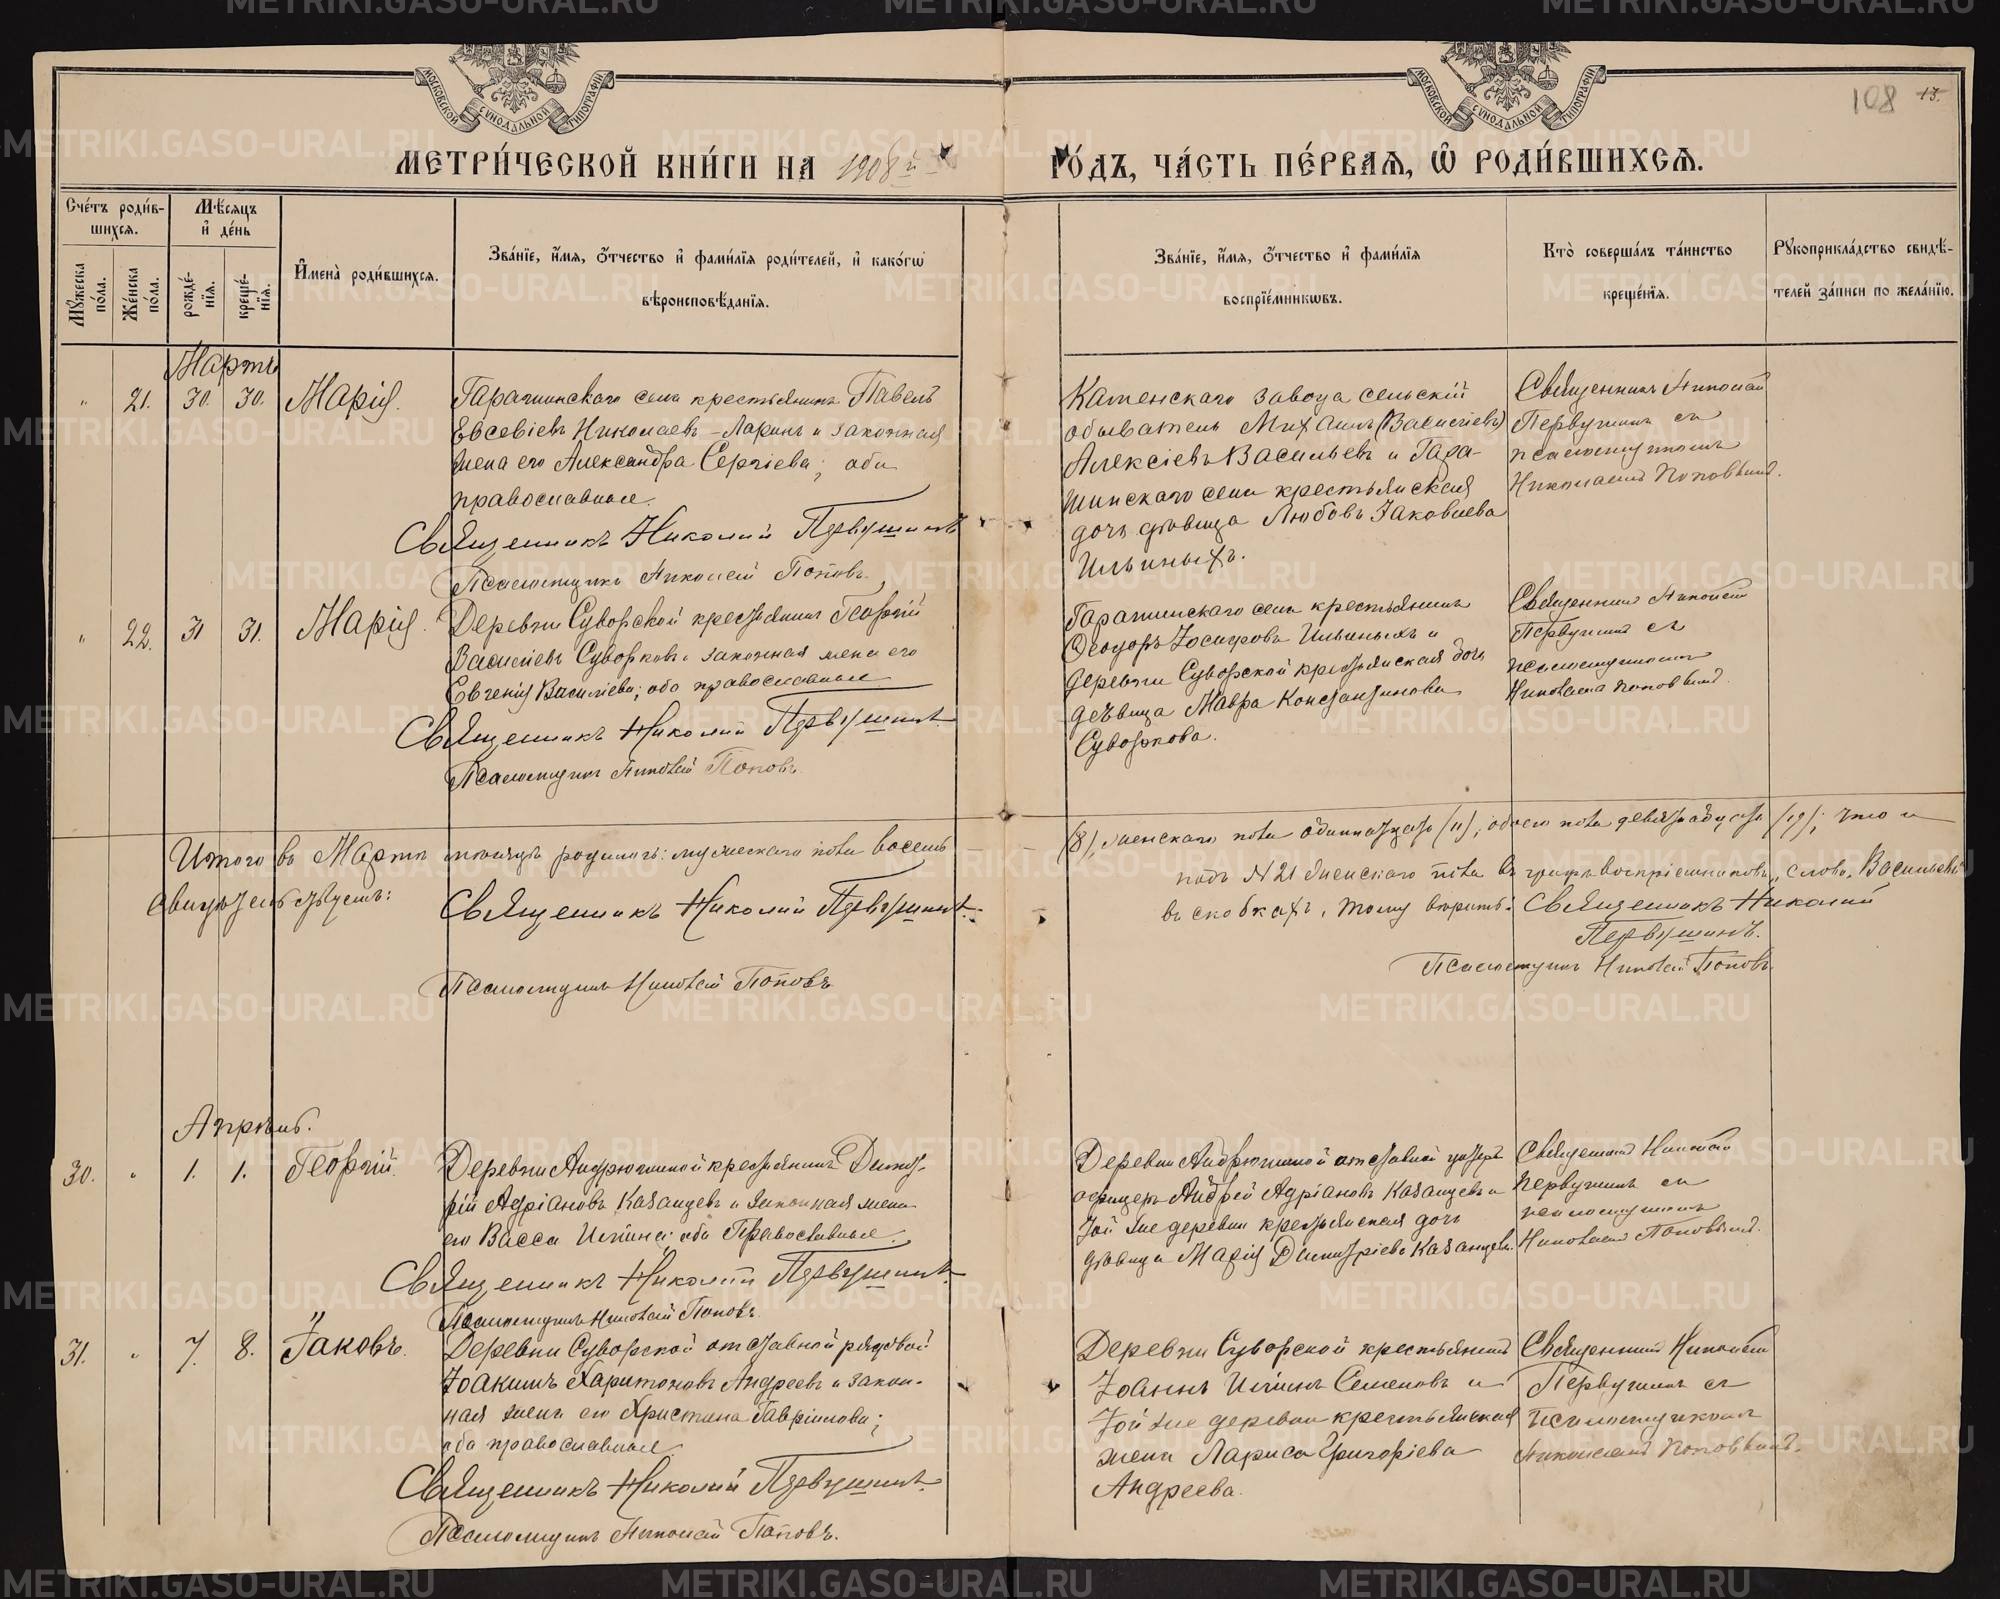 МОСКОВСКОЙ СѴНОДАЛЬНОЙ ТИПОГРАФІИ
МОСКОВСКОЙ СѴНОДАЛЬНОЙ ТИПОГРАФІИ
108 13.
МЕТРИ́ЧЕСКОЙ КНИ́ГИ НА 1908й
ГО́ДЪ, ЧА́СТЬ ПЕ́РВАЯ, Ѡ РОДИ́ВШИХСЯ.
Сче́тъ роди́в-
шихся.
Мѣ́сяцъ
и де́нь
Мꙋ́жеска по́ла.
Же́нска по́ла.
рожде́-
нїя.
креще́-
нїя.
Имена̀ роди́вшихся.
Зва́нїе, и́мя, о́тчество и фами́лїя роди́телей, и како́гѡ
вѣроисповѣ́данїя.
Зва́нїе, и́мя, о́тчество и фами́лїя
воспрїе́мникѡвъ.
Кто̀ соверша́лъ та́инство
креще́нїя.
Рꙋкоприкла́дство свидѣ́-
телей за́писи по жела́нїю.
Мартъ
" 21. 30. 30. Марія.
Гарашинскаго села крестьянинъ Павелъ
Евсевіевъ Николаевъ-Ларинъ и законная
жена его Александра Сергіева; оба
православные.
Священникъ Николай Первушинъ
Псаломщикъ Николай Поповъ.
Каменскаго завода сельскій
обыватель Михаилъ (Василіевъ)
Алексіевъ Васильевъ и Гара-
шинскаго села крестьянская
дочь дѣвица Любовь Іаковлева
Ильиныхъ.
Священникъ Николай
Первушинъ съ
псаломщикомъ
Николаемъ Поповымъ.
" 22. 31 31. Марія.
Деревни Суворской крестьянинъ Георгій
Василіевъ Суворковъ и законная жена его
Евгенія Василіева; оба православные
Священникъ Николай Первушинъ.
Псаломщикъ Николай Поповъ.
Гарашинскаго села крестьянинъ
Ѳеодоръ Іосифовъ Ильиныхъ и
деревни Суворской крестьянская дочь
дѣвица Мавра Константинова
Суворкова.
Священникъ Николай
Первушинъ съ
псаломщикомъ
Николаемъ Поповымъ.
Итого въ Мартѣ мѣсяцѣ родилось: мужескаго пола восемь
(8), женскаго пола одиннадцать (11), обоего пола девятнадцать (19); что и
свидѣтельствуемъ:
подъ №21 женскаго пола въ графѣ воспріемниковъ, слово "Васильевъ"
въ скобкахъ, тому вѣрить:
Священникъ Николай Первушинъ.
Псаломщикъ Николай Поповъ
Священникъ Николай
Первушинъ.
Псаломщикъ Николай Поповъ.
Апрѣль.
30. " 1. 1. Георгій
Деревни Андрюшиной крестьянинъ Димит-
рій Адріановъ Казанцевъ и законная жена
его Васса Ильина; оба Православные.
Священникъ Николай Первушинъ.
Псаломщикъ Николай Поповъ.
Деревни Андрюшиной отставной унтеръ
офицеръ Андрей Адріановъ Казанцевъ и
той же деревни крестьянская дочь
дѣвица Марія Димитріева Казанцева.
Священникъ Николай
Первушинъ съ
псаломщикомъ
Николаемъ Поповымъ.
31. " 7. 8. Іаковъ.
Деревни Суворской отставной рядовой
Іоакимъ Харитоновъ Андреевъ и закон-
ная жена его Христина Гавріилова;
оба православные
Священникъ Николай Первушинъ.
Псаломщикъ Николай Поповъ.
Деревни Суворской крестьянинъ
Іоаннъ Ильинъ Семеновъ и
той же деревни крестьянская
жена Лариса Григоріева
Андреева.
Священникъ Николай
Первушинъ съ
Псаломщикомъ
Николаемъ Поповымъ.
METRIKI.GASO-URAL.RU